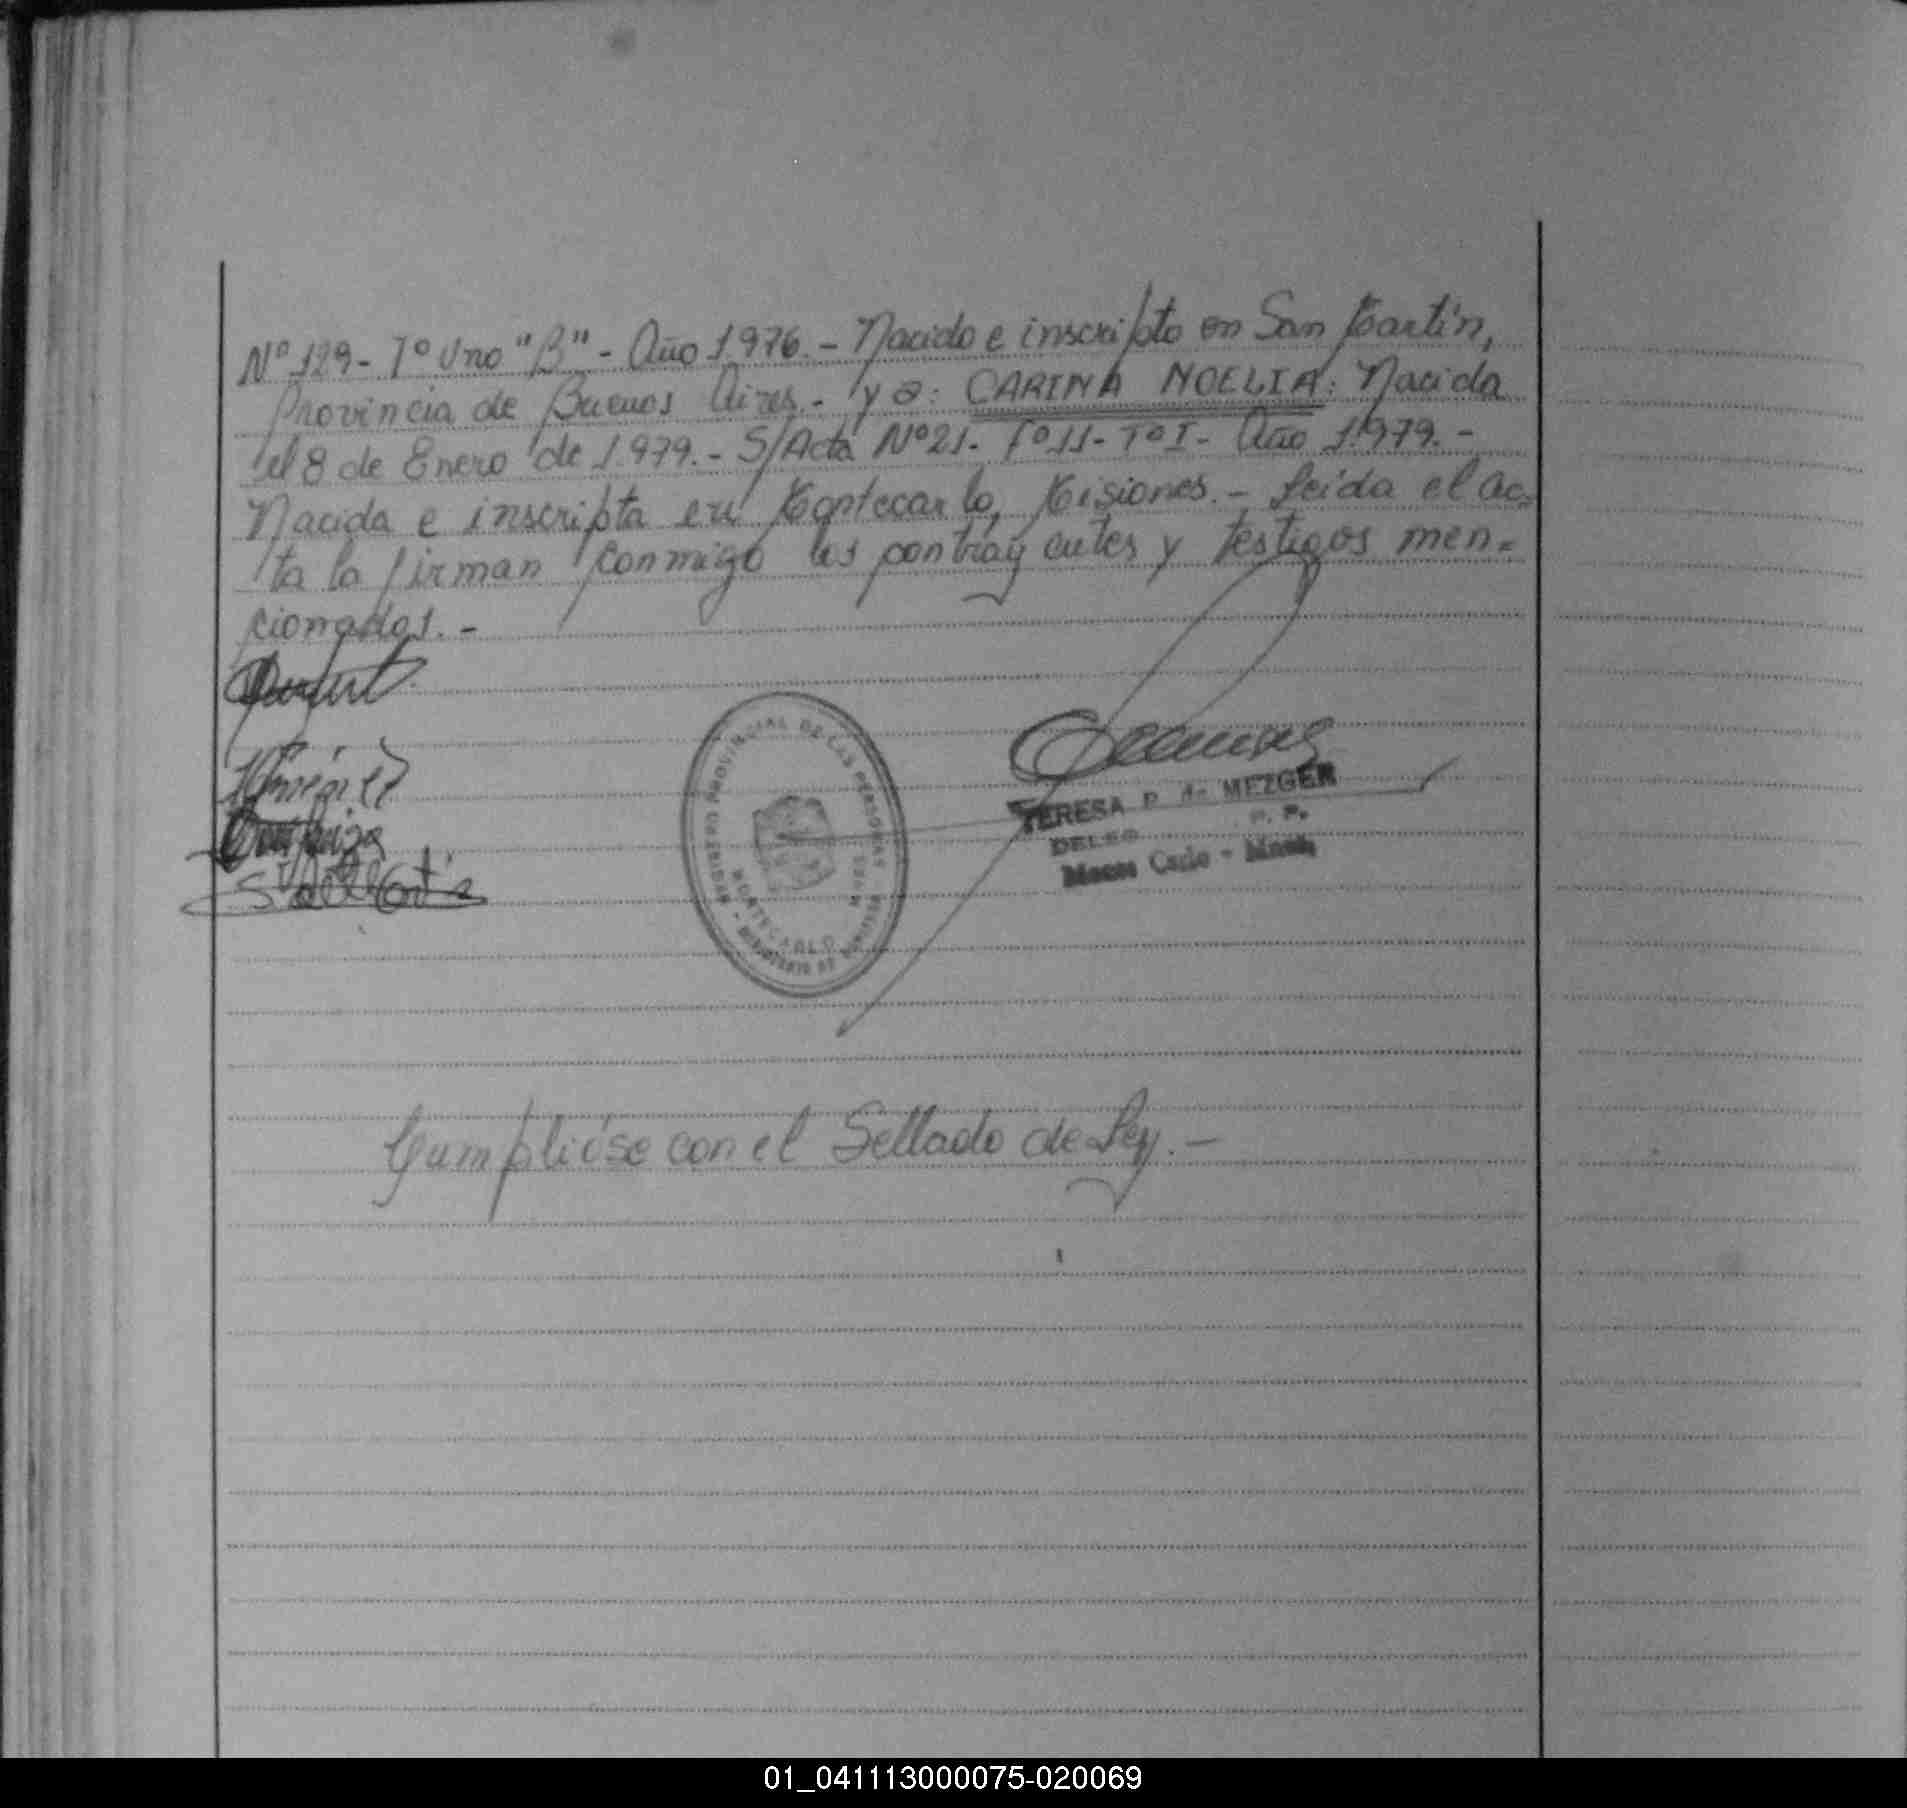 Nº 129.- Tº Uno "B".- Año 1.976.- Nacido e inscripto en San Martín,
Provincia de Buenos Aires.- y a: CARINA NOELIA: Nacida
el 8 de Enero de 1.979.- S/Acta Nº 21- Fº 11- Tº I- Año 1.979.-
Nacida e inscripta en Montecarlo, Misiones.- Leida el ac=
ta la firman conmigo los contrayentes y testigos men=
cionados.-
REGISTRO PROVINCIAL DE LAS PERSONAS
MONTECARLO
TERESA P. de MEZGER
DELEG
Monte Carlo - Mnes.
Cumplióse con el Sellado de Ley.-
01_041113000075-020069